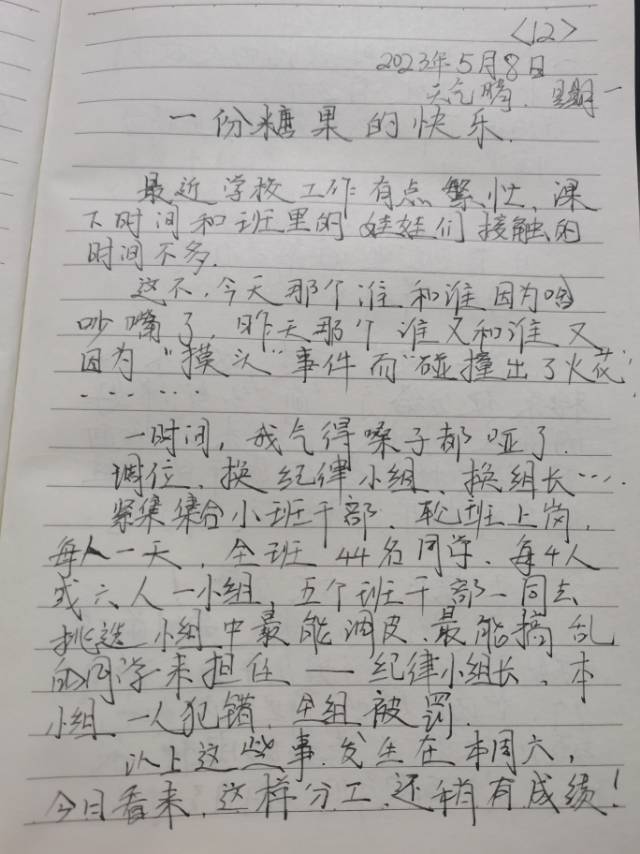 <12>
2023年5月8日
天气晴. 星期一
一份糖果的快乐.
最近学校工作有点繁忙、课
下时间和班里的娃娃们接触的
时间不多.
这不,今天那个谁和谁因为啥
吵嘴了,昨天那个谁又和谁又
因为“摸头”事件而“碰撞出了火花”
......
一时间,我气得嗓子都哑了.
调位、换纪律小组、换组长....
紧集集合小班干部、轮班上岗,
每人一天,全班44名同学、每4人
或六人一小组,五个班干部一同去
挑选小组中最能调皮、最能捣乱
的同学来担任——纪律小组长、本
小组一人犯错,全组被罚.
以上这些事,发生在本周六,
今日看来,这样分工,还稍有成绩!